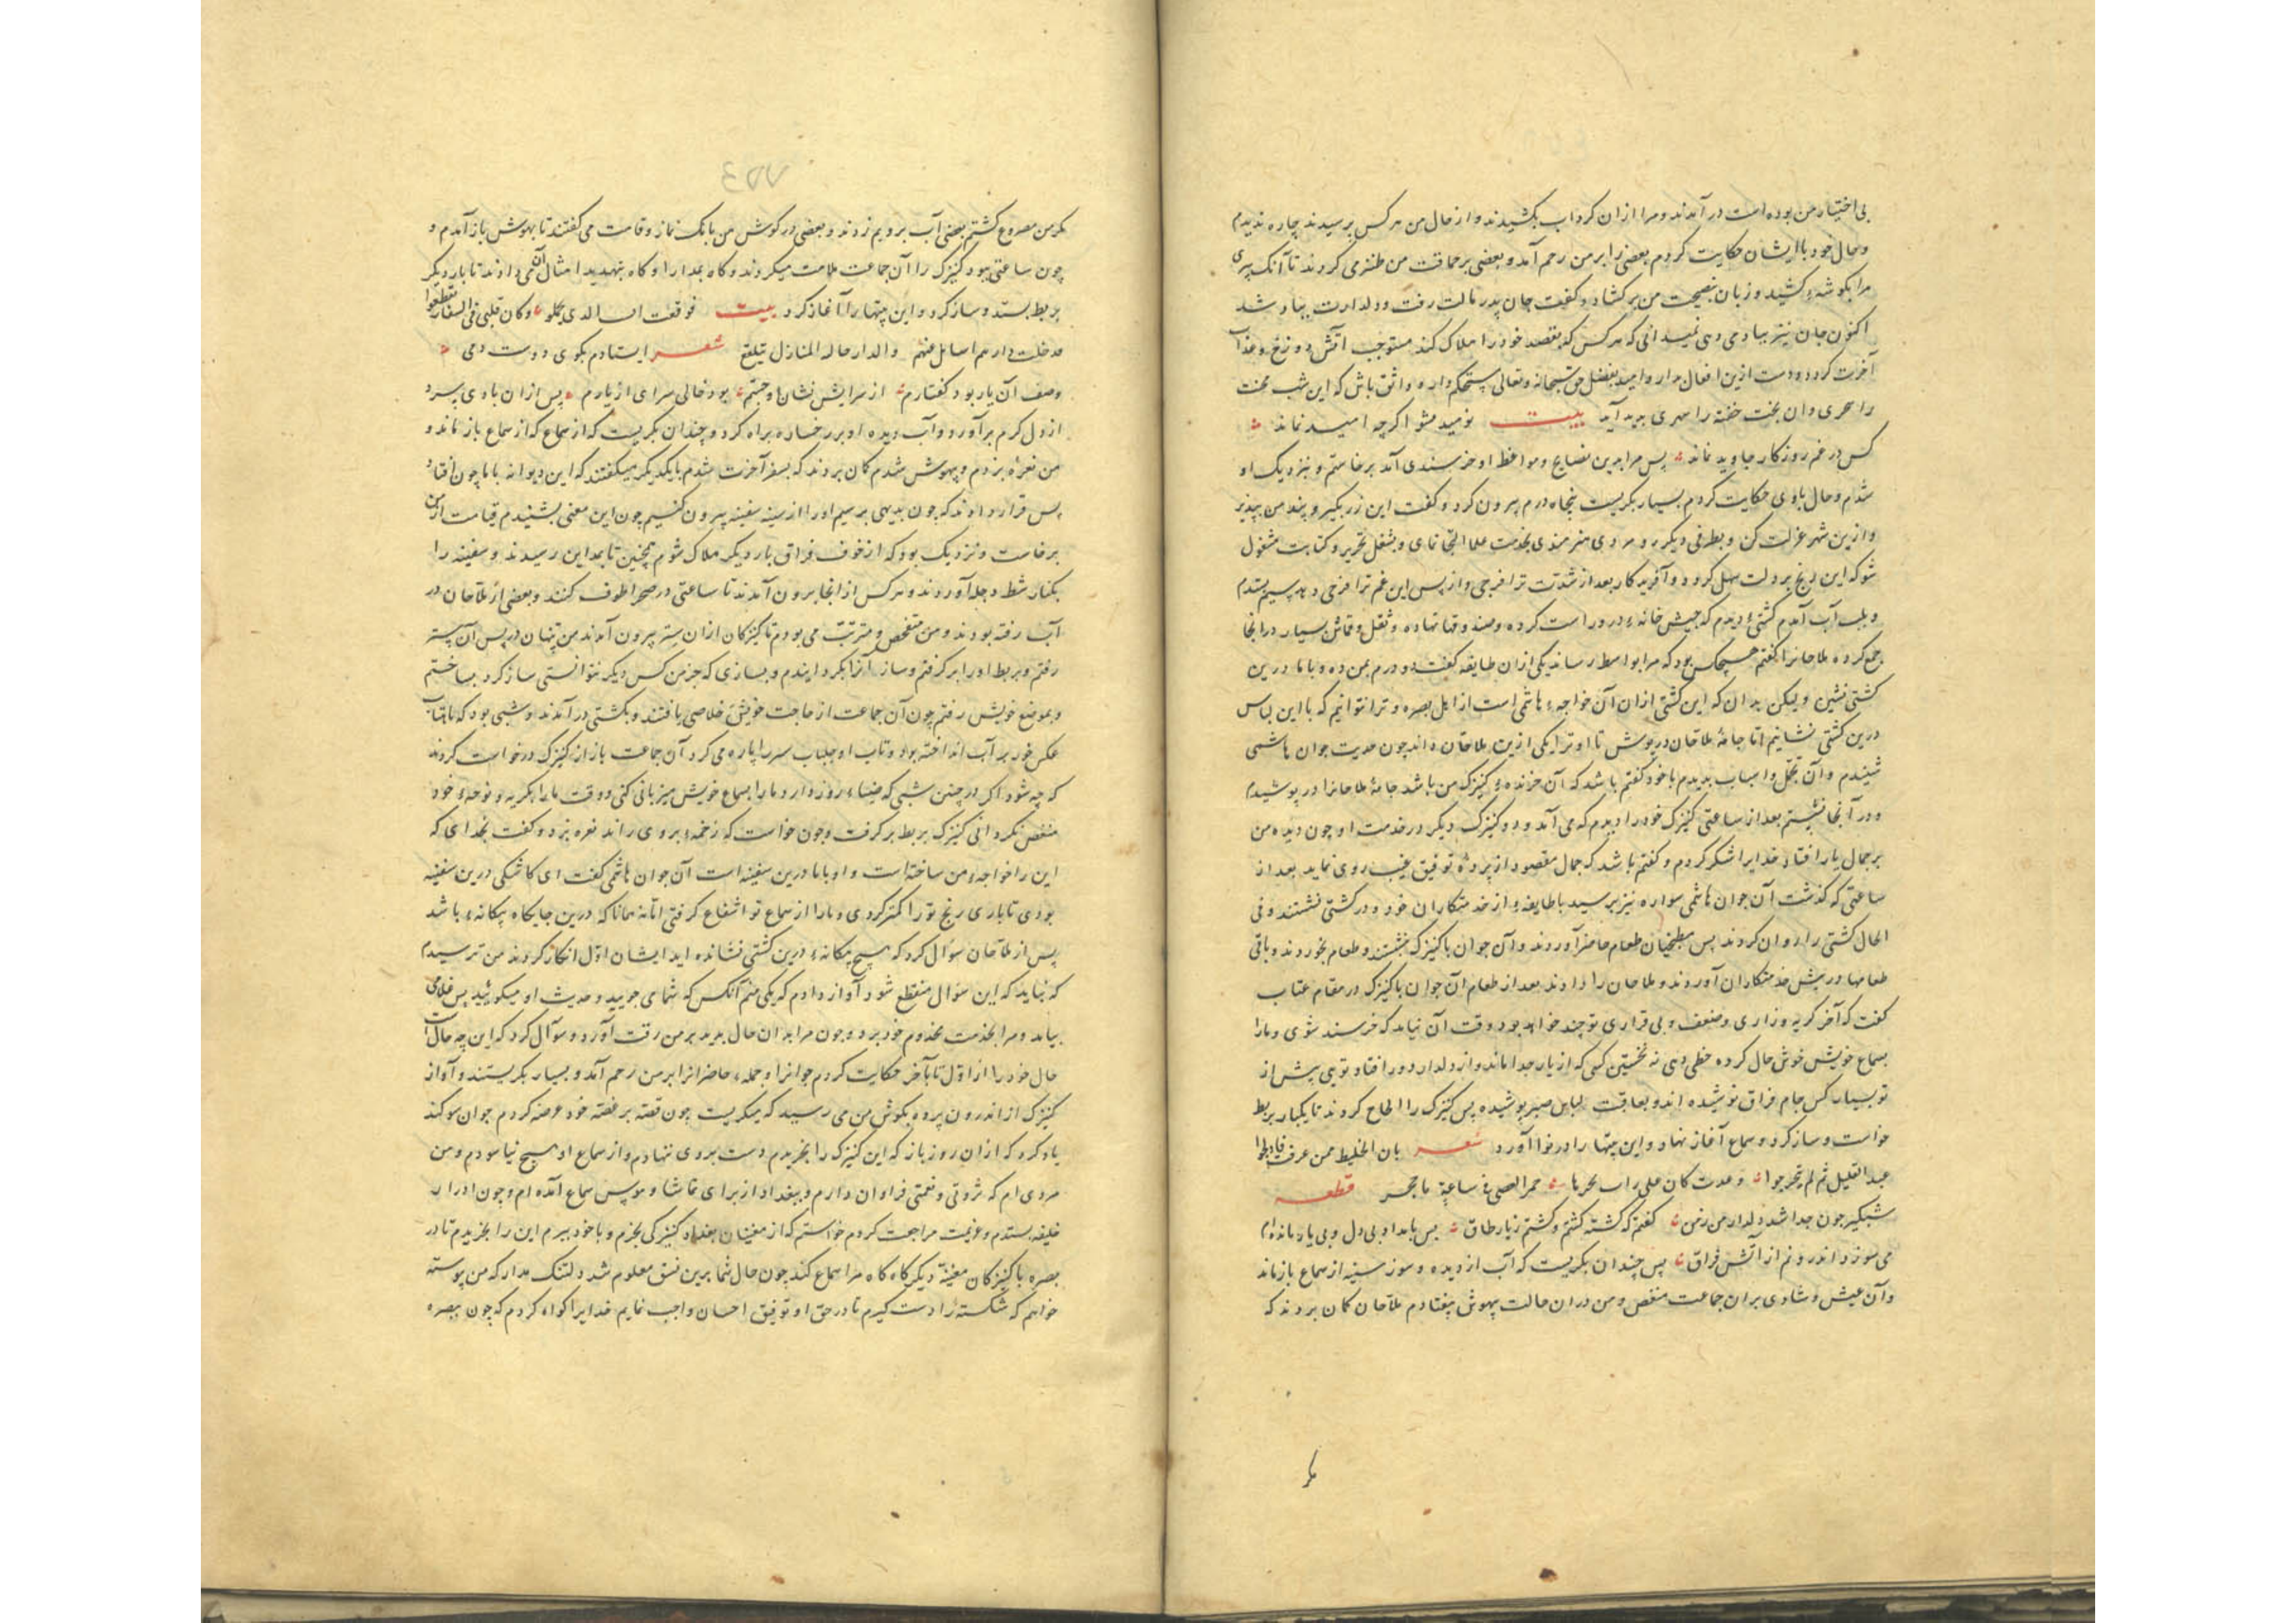 بی اختیار من بوده است در آمدند و مرا از ان کرداب بکشیدند و از حال من هر کس برسیدند چاره ندیدم
و حال خود با ایشان حکایت کردم بعضی را بر من رحم آمد و بعضی بر حماقت من طنز می کردند تا آنک پیری
مرا بکوشهٔ کشید و زبان بنصیحت من بر کشاد و کفت جان پدر مالت رفت و دلدارت بباد شد
اکنون جان نیز بباد می دهی نمیدانی که هر کس که بقصد خود را هلاک کند مستوجب آتش دوزخ و عذاب
آخرت کردد دست ازین افعال بدار و امید بفضل حق سبحانه و تعالی مستحکم دار و واثق باش که این شب محنت
را سحری و ان بخت خفته را سهری بدید آید بیت نومید مشو اکرچه امید نماند
کس در غم روزکار جاوید نماند پس مرا بدین نصایح و مواعظ او خرسندی آمد برخاستم و بنزدیک او
شدم و حال با وی حکایت کردم بسیار بکریست پنجاه درم بیرون کرد و کفت این زر بکیر و پند من بپذیر
و ازین شهر عزلت کن و بطرفی دیکر رو مردی هنرمندی بخدمت علما التجا نمای و بشغل تحریر و کتابت مشغول
شو که این رنج بر دلت سهل کردد و آفریدکار بعد از شدت ترا فرجی و از پس این غم ترا فرحی دهد سیم بستدم
و بلب آب آمدم کشتیٔ دیدم که خیش خانهٔ در و راست کرده و صندوقها نهاده و ثقل و قماش بسیار در انجا
جمع کرده ملاحانرا کفتم هیچکس بود که مرا بواسط رساند یکی از ان طایفه کفت دو درم بمن ده و با ما درین
کشتی نشین ولیکن بدان که این کشتی از ان آن خواجهٔ هاشمی است از اهل بصره و ترا نتوانیم که با این لباس
درین کشتی نشانیم اما جامهٔ ملاحان در پوش تا او ترا یکی ازین ملاحان داند چون حدیث جوان هاشمی
شنیدم و آن تجمل و اسباب بدیدم با خود کفتم باشد که آن خرنده کنیزک من باشد جامهٔ ملاحانرا در پوشیدم
و در آنجا نشستم بعد از ساعتی کنیزک خود را دیدم که می آمد و دو کنیزک دیکر در خدمت او چون دیده من
بر جمال یار افتاد خدایرا شکر کردم و کفتم باشد که جمال مقصود از پردهٔ توفیق غیب روی نماید بعد از
ساعتی که کذشت آن جوان هاشمی سواره نیز برسید با طایفهٔ از خدمتکاران خود و در کشتی نشستند و فی
الحال کشتی را روان کردند پس مطبخیان طعام حاضر آوردند و آن جوان با کنیزک بنشستند و طعام بخوردند و باقی
طعامها در پیش خدمتکاران آوردند و ملاحان را دادند بعد از طعام آن جوان با کنیزک در مقام عتاب
کفت که آخر کریه و زاری و ضعف و بی قراری تو چند خواهد بود وقت آن نیامد که خرسند شوی و مارا
بسماع خویش خوش حال کرده حظی دهی نه نخستین کسی که از یار جدا ماند و از دلدار دور افتاد تویی پیش از
تو بسیار کس جام فراق نوشیده اند و بعاقبت لباس صبر پوشیده پس کنیزک را الحاح کردند تا یکبار بربط
خواست و ساز کرد و سماع آغاز نهاد و این بیتها را در نوا آورد شعر بان الخلیط ممن عرفت فادلجوا
عبد القلیل ثم لم یتحرجوا و غدت کان علی راب نحرها جمر الغضی فی ساعة ما جمر قطعه
شبکیر چون جدا شد دلدار من زمن کفتم که کشته کشتم و کشتم زیار طاق پس بامداد بی دل و بی یار مانده ام
می سوزد اندرونم از آتش فراق پس چندان بکریست که آب از دیده و سوز سینه از سماع باز ماند
و آن عیش و شادی بران جماعت منغص و من دران حالت بیهوش بیفتادم ملاحان کمان بردند که
مکر
مکر من مصروع کشتم بعضی آب بر رویم زدند و بعضی در کوش من بانک نماز و قامت می کفتند تا بهوش باز آمدم و
چون ساعتی ببود کنیزک را آن جماعت ملامت میکردند و کاه بمدارا و کاه بتهدید امثال آن می دادند تا بار دیکر
بربط بستد و ساز کرد و این بیتها را آغاز کرد بیت فوقفت اسا الذی تحملو و کان قلبی فی السفار تقطعوا
فدخلت دارهم اسایل عنهم والدار خالة المنازل بلقع شعر ایستادم بکوی دوست دمی
وصف آن یار بود کفتارم از سرایش نشان او جستم بود خالی سرای از یارم پس از ان بادی سرد
از دل کرم برآورد و آب دیده او بر رخساره براه کرد و چندان بکریست که از سماع باز ماند و
من نعرهٔ بزدم و بیهوش شدم کمان بردند که بسفر آخرت شدم با یکدیکر میکفتند که این دیوانه با ما چون افتاد
پس قرار دادند که چون بدیهی برسیم او را ازین سفینه بیرون کنیم چون این معنی بشنیدم قیامت از من
برخاست و نزدیک بود که از خوف فراق بار دیکر هلاک شوم همچنین تا بمداین رسیدند و سفینه را
بکنار شط دجله آوردند و هر کس از انجا برون آمدند تا ساعتی در صحرا طوف کنند و بعضی از ملاحان در
آب رفته بودند و من متفحص و مترتب می بودم تا کنیزکان از ان ستر بیرون آمدند من پنهان در پس آن ستر
رفتم و بربط او را بر کرفتم و ساز آنرا بکردانیدم و بسازی که جز من کس دیکر نتوانستی ساز کرد بساختم
و بموضع خویش رفتم چون آن جماعت از حاجت خویش خلاصی یافتند و بکشتی در آمدند و شبی بود که ماهتاب
عکس خود بر آب انداخته بود و تاب او جلباب سر را پاره می کرد آن جماعت باز از کنیزک درخواست کردند
که چه شود اکر در چنین شبی که ضیاء روز دارد مارا بسماع خویش میزبانی کنی و وقت مارا بکریه و نوحهٔ خود
منغص نکردانی کنیزک بربط بر کرفت و چون خواست که زخمهٔ بر وی راند نعره بزد و کفت بخدای که
این را خواجهٔ من ساخته است و او با ما درین سفینه است آن جوان هاشمی کفت ای کاشکی درین سفینه
بودی تا باری رنج تو را کمتر کردی و مارا از سماع تو انتفاع کرفتی اما نه همانا که درین جایکاه بیکانهٔ باشد
پس از ملاحان سوال کرد که هیچ بیکانهٔ درین کشتی نشانده اید ایشان اول انکار کردند من ترسیدم
که نباید که این سؤال منقطع شود آواز دادم که یکی منم آنکس که شما می جویید و حدیث او میکویید پس غلامی
بیامد و مرا بخدمت مخدوم خود برد و چون مرا بدان حال بدید بر من رقت آورد و سوآل کرد که این چه حال است
حال خود را از اول تا بآخر حکایت کردم جوانرا و جملهٔ حاضرانرا بر من رحم آمد و بسیار بکریستند و آواز
کنیزک از اندرون پرده بکوش من می رسید که میکریست چون قصه بر غصه خود عرضه کردم جوان سوکند
یاد کرد که از ان روز باز که این کنیزک را بخریدم دست بروی ننهادم و از سماع او هیچ نیاسودم و من
مردی ام که ثروتی و نعمتی فراوان دارم و ببغداد از برای تماشا و هوس سماع آمده ام و چون ادرار
خلیفه بستدم و عزیمت مراجعت کردم خواستم که از مغنیان بغداد کنیزکی بخرم و با خود ببرم این را بخریدم تا در
بصره با کنیزکان مغنیهٔ دیکر کاه کاه مرا سماع کند چون حال شما برین نسق معلوم شد دلتنک مدار که من پیوسته
خواهم که شکسته را دست کیرم تا در حق او توفیق احسان واجب نمایم خدایرا کواه کردم که چون ببصره